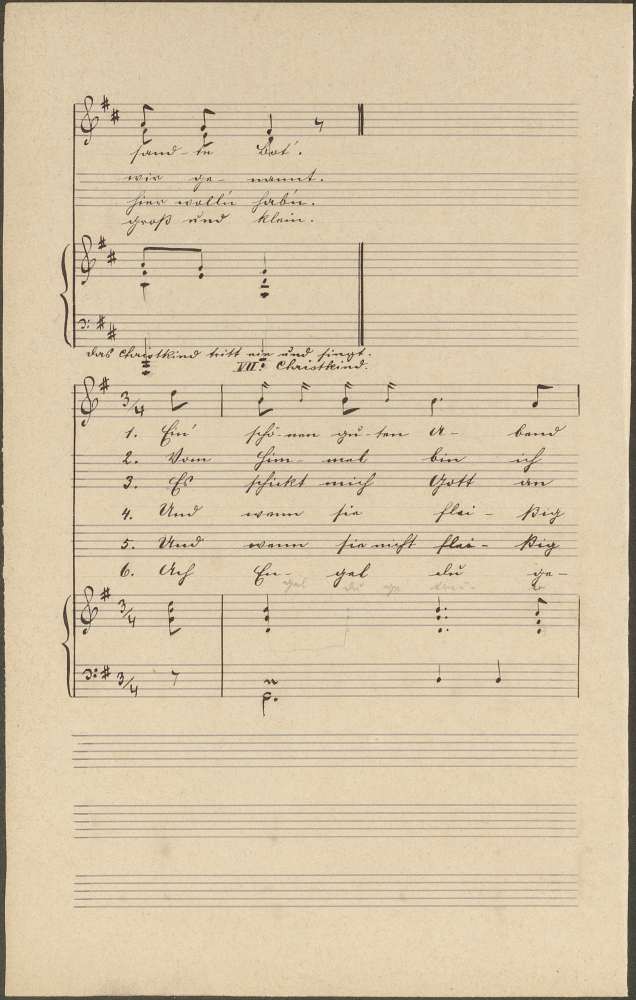 sand - te Bot'.
wir ge - nannt.
hier woll'n hab'n.
groß und klein.
Das Christkind tritt ein und singt.
VII. Christkind.
3/4
1. Ein' schö - nen gu - ten A - bend
2. Vom Him - mel bin ich
3. Es schickt mich Gott an
4. Und wenn sie flei - ßig
5. Und wenn sie nicht flei - ßig
6. Ach En - gel du ge -
gel du ge
3/4
3/4